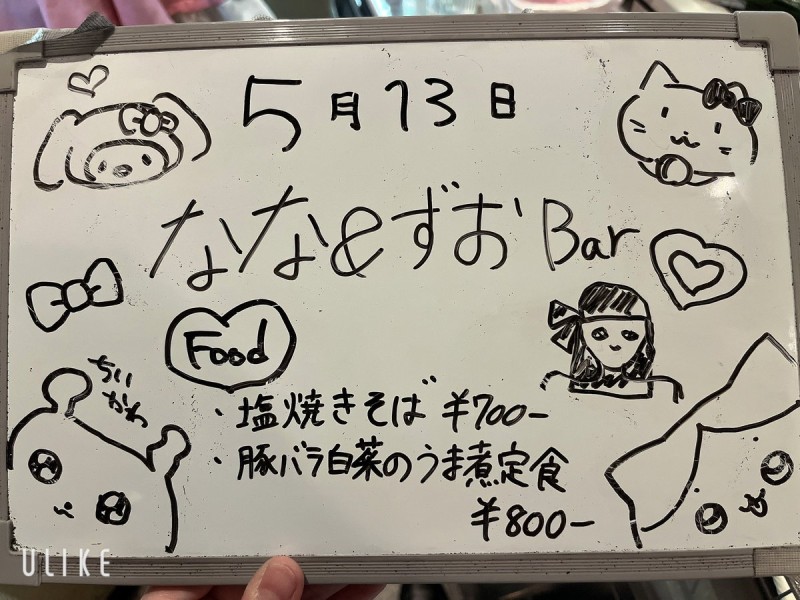 5月13日
なな&ずお Bar
Food
ちい
かわ
・塩焼きそば ¥700-
・豚バラ白菜のうま煮定食
¥800-
ULIKE